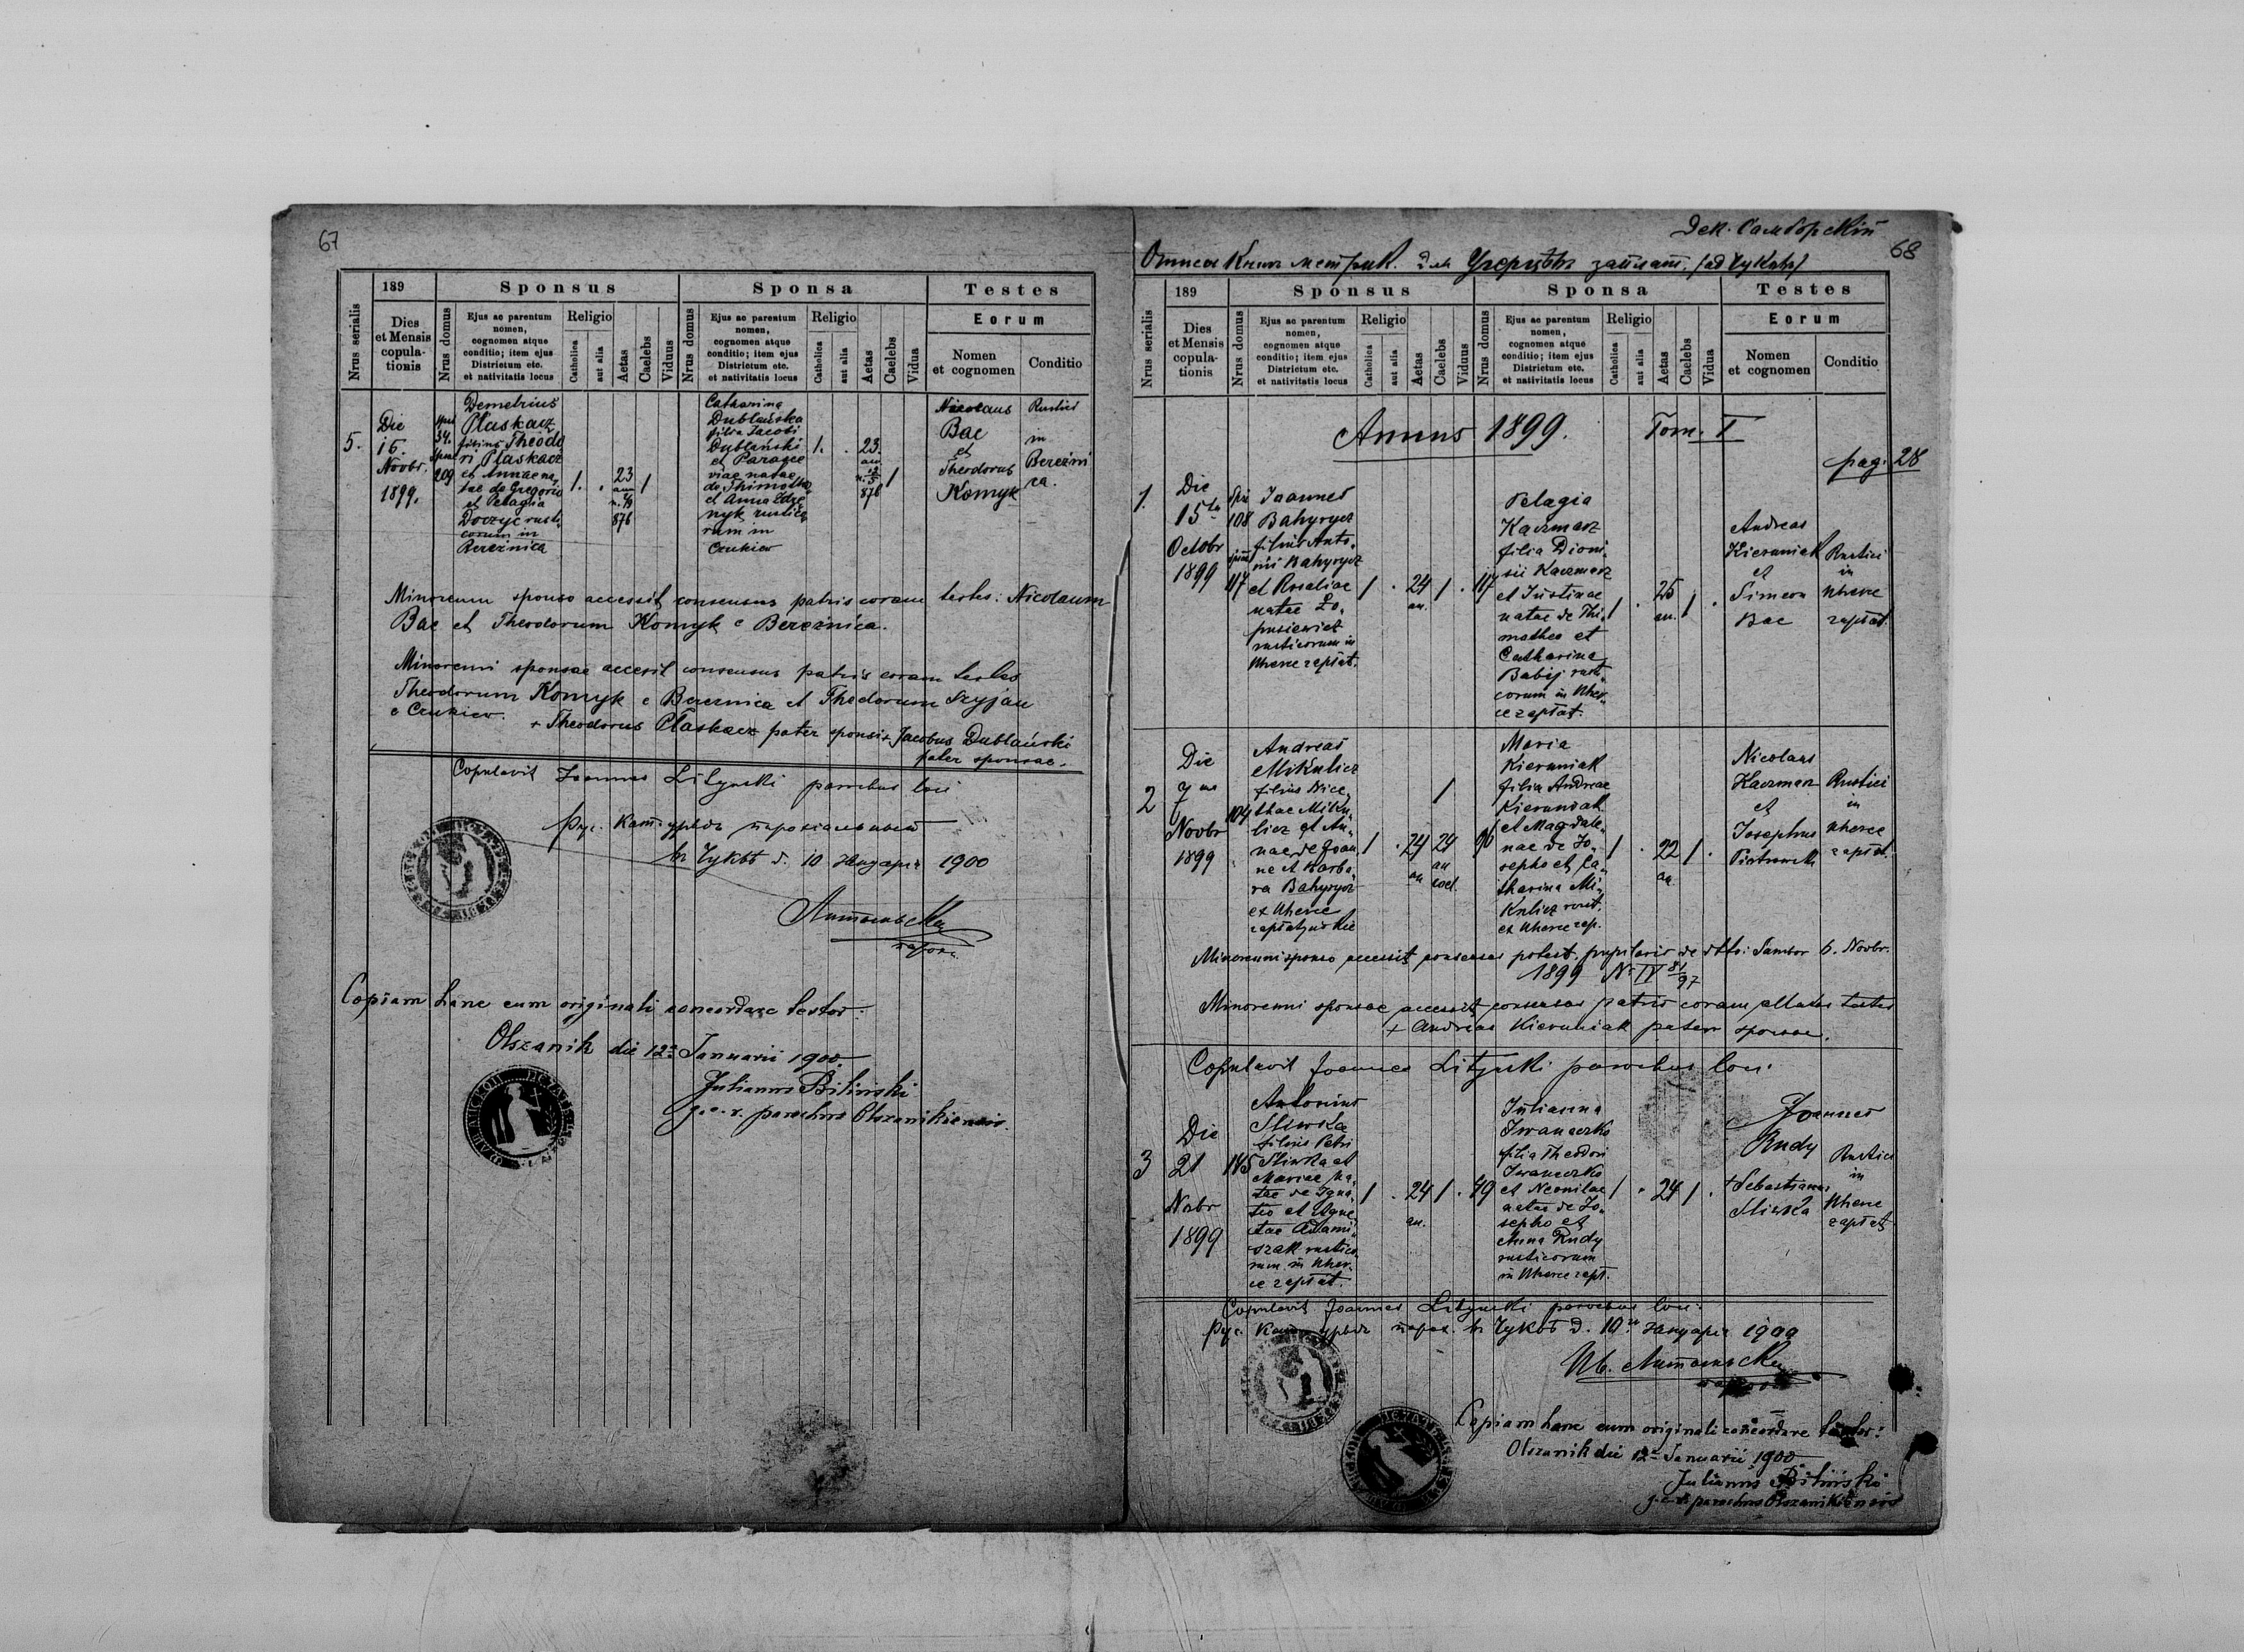 67
189
Sponsus
Sponsa
Testes
Nrus serialis
Dies
et Mensis
copula-
tionis
Nrus domus
Ejus ac parentum
nomen,
cognomen atque
conditio; item ejus
Districtum etc.
et nativitatis locus
Religio
Catholica
aut alia
Aetas
Caelebs
Viduus
Nrus domus
Ejus ac parentum
nomen,
cognomen atque
conditio; item ejus
Districtum etc.
et nativitatis locus
Religio
Catholica
aut alia
Aetas
Caelebs
Vidua
Eorum
Nomen
et cognomen
Conditio
5.
Die
16.
Novbr.
1899.
34.
209
Demetrius
Płaskacz
filius Theodo
ri Płaskacz
et Annae na„
tae de Gregorio
et Pelagia
Doczyc rusti„
corum in
Bereźnica
1.
.
23
ann
876
1
Catharina
Dublańska
filia Jacobi
Dublański
et Parasce
viae natae
de Thimotheo
et Anna
nyk rustico
rum in
Czukiew
1.
.
23
ann
876
1
Nicolaus
Bac
et
Theodorus
Komyk
Rustici
in
Berezni
ca.
Minorenni sponso accessit consensus patris coram testes: Nicolaum
Bac et Theodorum Komyk e Bereźnica.
Minorenni sponsae accesit consensus patris coram testes
Theodorum Komyk e Bereznica et Theodorum Szyjan
e Czukiew.
+ Theodorus Płaskacz pater sponsi + Jacobus Dublański
pater sponsae.
Copulavit Joannes Litynski parochus loci
Рус. кат. урядъ парохіальный
въ Чуквѣ д. 10 Януарія 1900
Литыньскій
парох
Copiam hanc cum originali concordare testor:
Olszanik die 12a Januarii 1900
Julianus Biliński
g.c.r. parochus Olszanikiensis.
Дек. Самборскій
68
Отписи Книги метрик. для Угерцѣвъ заплат. (ad Чуква)
189
Sponsus
Sponsa
Testes
Nrus serialis
Dies
et Mensis
copula-
tionis
Nrus domus
Ejus ac parentum
nomen,
cognomen atque
conditio; item ejus
Districtum etc.
et nativitatis locus
Religio
Catholica
aut alia
Aetas
Caelebs
Viduus
Nrus domus
Ejus ac parentum
nomen,
cognomen atque
conditio; item ejus
Districtum etc.
et nativitatis locus
Religio
Catholica
aut alia
Aetas
Caelebs
Vidua
Eorum
Nomen
et cognomen
Conditio
Annus 1899. Tom. I
pag. 28
1.
Die
15ta
Octobr
1899
108
117
Joannes
Bahyrycz
filius Anto„
nii Bahyrycz
et Rosaliae
natae Lo„
pusiewicz
rusticorum in
Uherce zapłat.
1
.
24
an.
1
.
117
Pelagia
Kaczmarz
filia Dioni„
sii Kaczmarz
et Justinae
natae de Thi„
matheo et
Catharina
Babij rusti„
corum in Uher„
ce zapłat.
1
.
25
an.
1
.
Andreas
Kieruniak
et
Simeon
Bac
Rustici
in
Uherce
zapłat.
2
Die
7ma
Novbr
1899
104
Andreas
Mikulicz
filius Nice„
thae Miku„
licz et An„
nae de Joan„
ne et Barba„
ra Bahyrycz
ex Uherce
zapłatyńskie
1
.
24
an
1
24
an
coel.
96
Maria
Kieruniak
filia Andreae
Kieruniak
et Magdale„
nae de Jo„
sepho et Ca„
tharina Mi„
kulicz rust.
ex Uherce zap.
1
.
22
an
1
.
Nicolaus
Kaczmarz
et
Josephus
Piotrowski
Rustici
in
Uherce
zapłat.
Minorenni sponso accessit consensus potest. pupilaris de dtto: Sambor 6. Novbr.
1899 N: IV 81/97
Minorenni sponsae accessit consensus patris coram testes
+ Andreas Kieruniak pater sponsae.
Copulavit Joannes Lityński parochus loci.
3
Die
21
Nobr
1899
145
Antonius
Sliwka
filius Petri
Sliwka et
Mariae na„
tae de Igna„
tio et Agne„
tae Adami„
szak rustico„
rum in Uher„
ce zapłat.
1
.
24
an.
1
.
49
Julianna
Iwaneczko
filia Theodori
Iwaneczko
et Neonilae
natae de Jo„
sepho et
Anna Rudy
rusticorum
in Uherce zapł.
1
.
24
1
.
Joannes
Rudy
+ Sebastianus
Sliwka
Rustici
in
Uherce
zapłat
Copulavit Joannes Litynski parochus loci.
Рус. Кат. урядъ парох. въ Чуквѣ д. 10го Януарія 1900
Ив. Литыньскій
парох
Copiam hanc cum originali concordare testor:
Olszanik die 12a Januarii 1900
Julianus Biliński
g.c.r. parochus Olszanikiensis